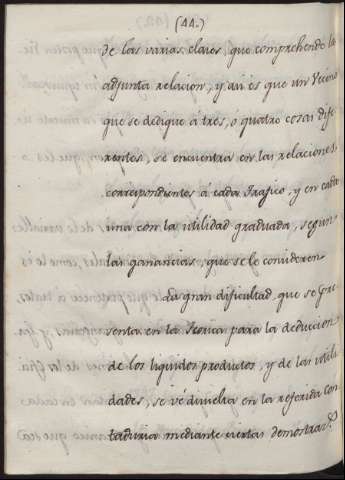 (44.)
de las varias clases que comprehende la
adjunta relacion, y asi es que un Vecino
que se dedique á tres, o quatro cosas dife
rentes, se encuentra en las relaciones
correspondientes á cada trafico, y en cada
una con la utilidad graduada, segun
las ganancias, que se le consideren
La gran dificultad, que se pre
senta en la Teorica para la deduccion
de los liquidos productos, y de las utili
dades, se vé disuelta en la referida con
taduria mediante ciertas demostrac.s